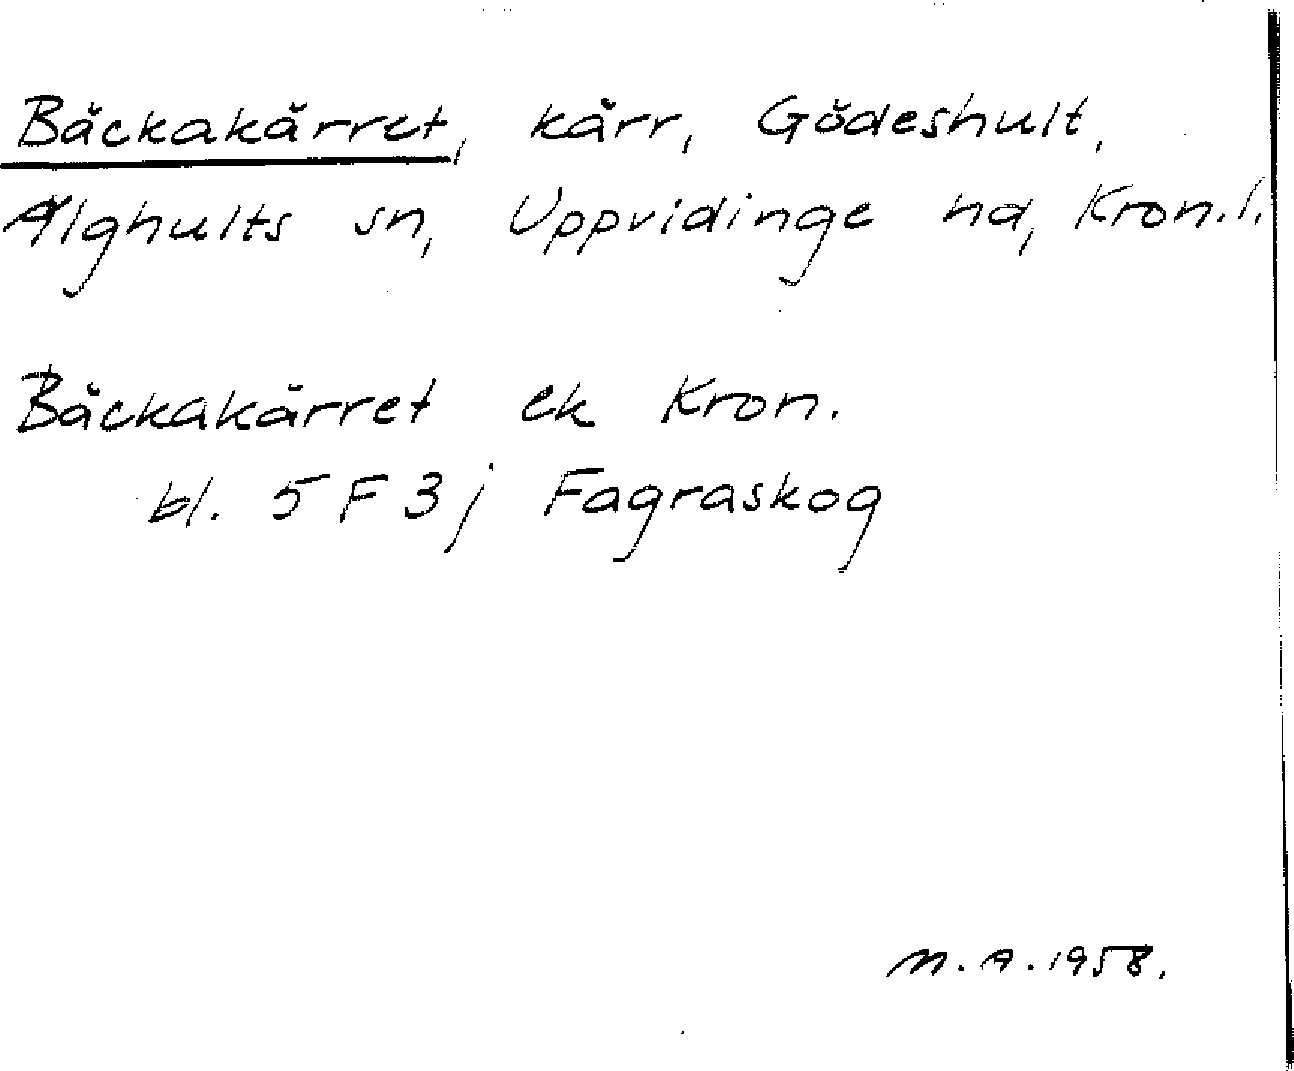 Bäckakärret, kärr, Gödeshult,
Älghults sn, Uppvidinge hd, Kron.l.
Bäckakärret ek Kron.
bl. 5 F 3 j Fagraskog
M. A. 1958.